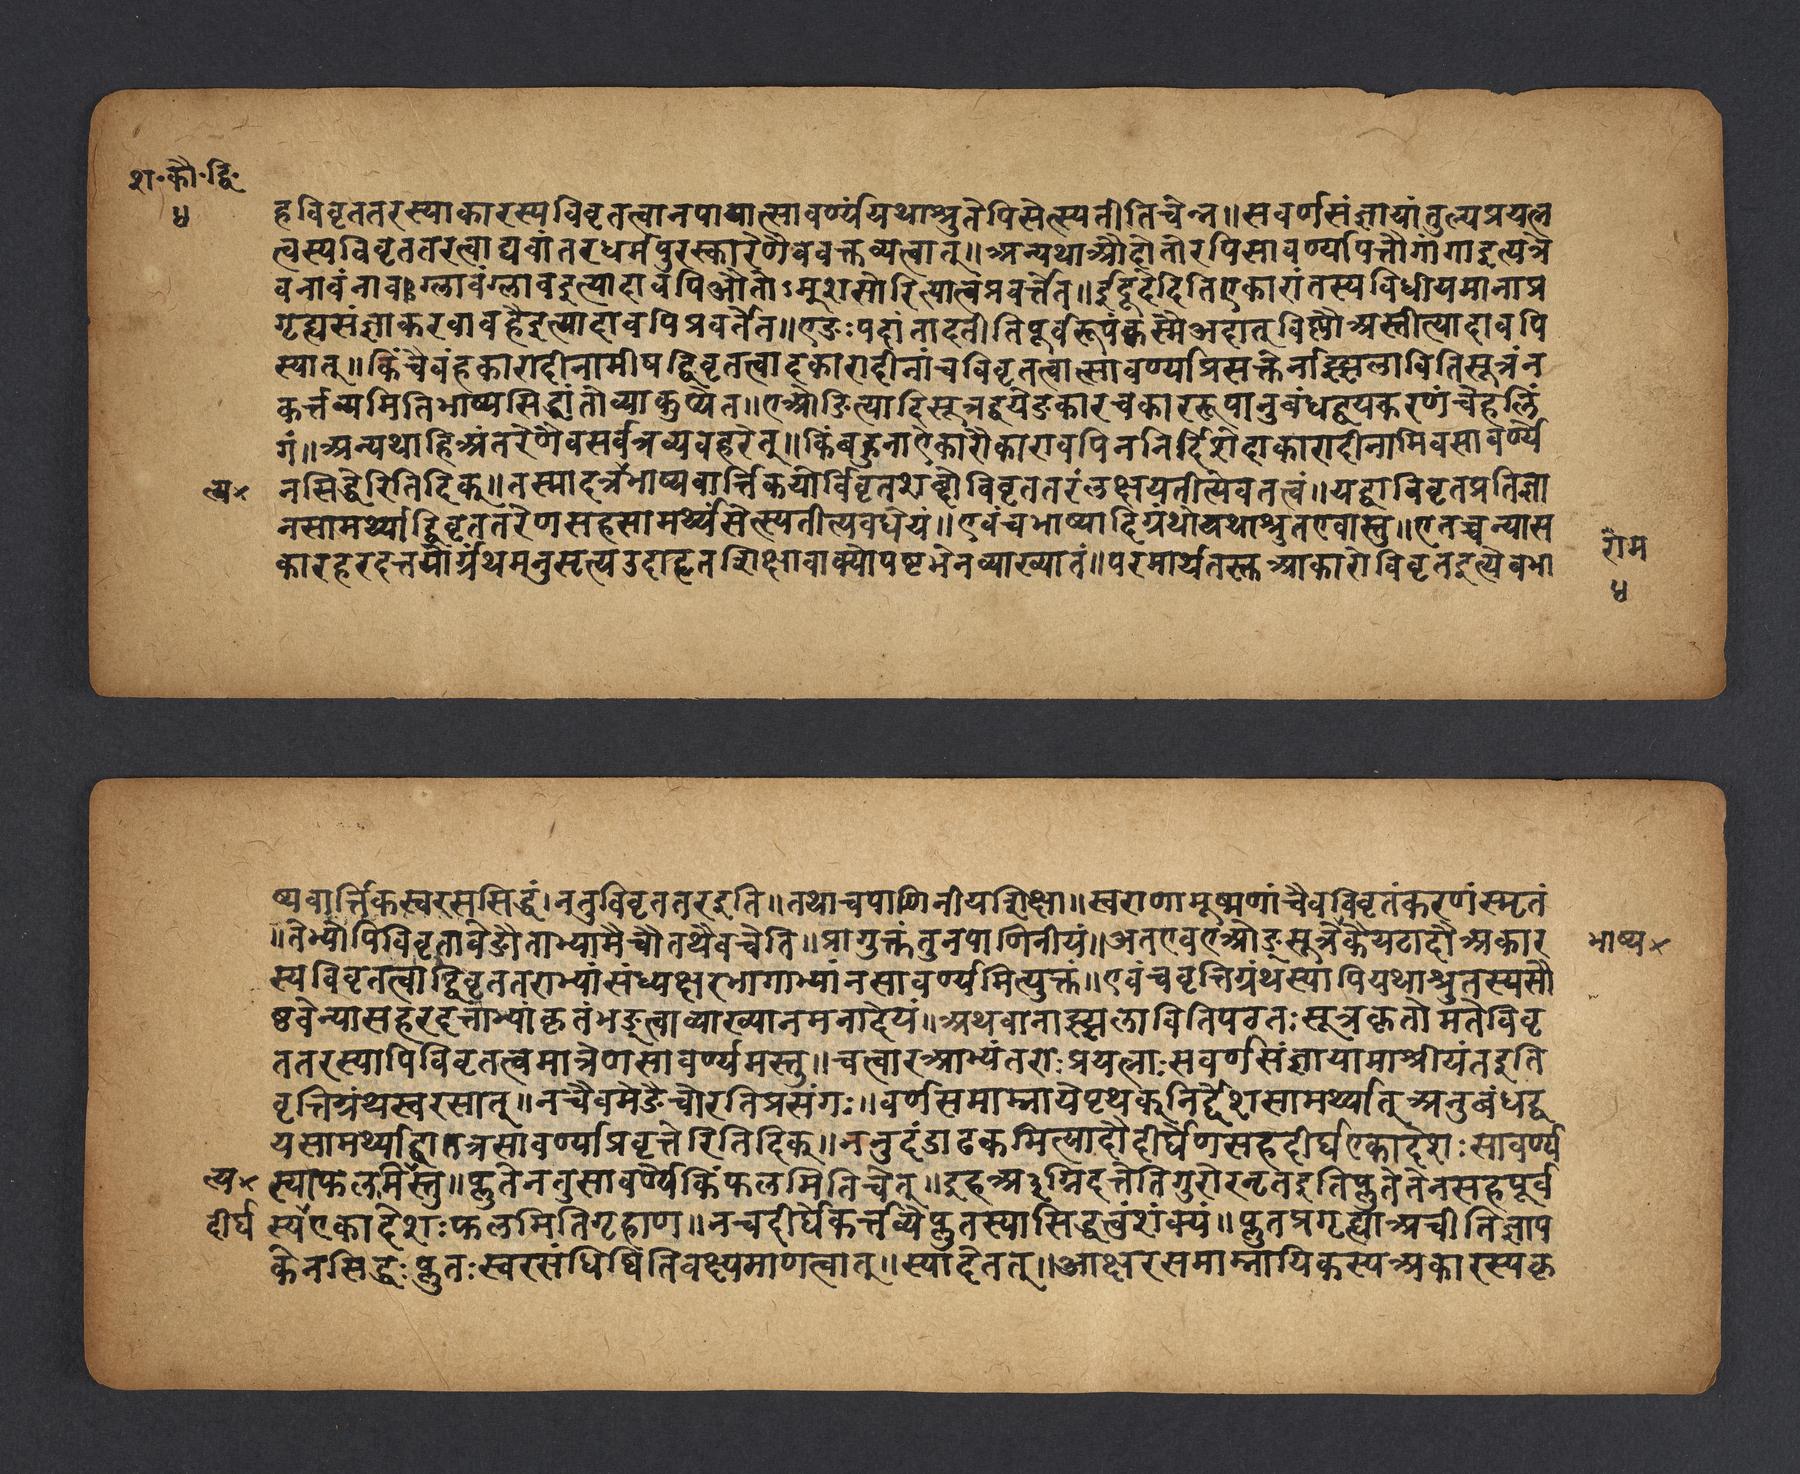 श॰कौ॰द्वि॰
४
हविवृततरस्याकारस्यविवृतत्वानपायात्सावर्ण्यंयथाश्रुतेपिसेत्स्यतीतिचेन्न॥सवर्णसंज्ञायांतुल्यप्रयत्न
त्वस्यविवृततरत्वाद्यवांतरधर्मपुरस्कारेणैववक्तव्यत्वात्॥अन्यथाऔदोतोरपिसावर्ण्यापत्तौगांगाइत्यत्रे
वनावंनावःग्लावंग्लावइत्यादावपिऔतोऽम्शसोरित्यात्वंप्रवर्त्तेत॥ईदूदेदितिएकारांतस्यविधीयमानाप्र
गृह्यसंज्ञाकरवावहैइत्यादावपिप्रवर्तेत॥एङःपदांतादतीतिपूर्वरूपंकस्मैअदात्विष्णौअस्तीत्यादावपि
स्यात्॥किंचैवंहकारादीनामीषद्विवृतत्वादकारादीनांचविवृतत्वात्सावर्ण्याप्रसक्तेर्नाज्झलावितिसूत्रंन
कर्त्तव्यमितिभाष्यसिद्धांतोव्याकुप्येत॥एओङित्यादिसूत्रद्वयेङकारचकाररूपानुबंधद्वयकरणंचेहलिं
गं॥अन्यथाहिअंतरेणैवसर्वत्रव्यवहरेत्॥किंबहुनाऐकारौकारावपिननिर्दिशेदाकारादीनामिवसावर्ण्ये
त्य× नसिद्धेरितिदिक्॥तस्मादत्रभाष्यवार्त्तिकयोर्विवृतशब्दोविवृततरंलक्षयतीत्येवतत्वं॥यद्वाविवृतप्रतिज्ञा
नसामर्थ्याद्विवृततरेणसहसामर्थ्यंसेत्स्यतीत्यवधेयं॥एवंचभाष्यादिग्रंथोयथाश्रुतएवास्तु॥एतच्चन्यास
कारहरदत्तयोर्ग्रंथमनुसृत्यउदाहृतशिक्षावाक्योपष्टंभेनव्याख्यातं॥परमार्थतस्तुआकारोविवृतंइत्येवभा
राम
४
ष्यवार्त्तिकस्वरससिद्धं।नतुविवृततरइति॥तथाचपाणिनीयशिक्षा॥स्वराणामूष्मणांचैवविवृतंकरणंस्मृतं
॥तेभ्योपिविवृतावेङौताभ्यामैचौतथैवचेति॥प्रागुक्तंतुनपाणिनीयं॥अतएवएओङ्सूत्रेकैयटादौअकार भाष्य×
स्यविवृतत्वाद्विवृततराभ्यांसंध्यक्षरभागाभ्यांनसावर्ण्यमित्युक्तं॥एवंचवृत्तिग्रंथस्यापियथाश्रुतस्यसौ
ष्ठवेन्यासहरदत्ताभ्यांकृतंभङ्त्वाव्याख्यानमनादेयं॥अथवानाज्झलावितिपठतःसूत्रकृतोमतेविवृ
ततरस्यापिविवृतत्वमात्रेणसावर्ण्यमस्तु॥चत्वारआभ्यंतराःप्रयत्नाःसवर्णसंज्ञायामाश्रीयंतइति
वृत्तिग्रंथस्वरसात्॥नचैवमेङैचोरतिप्रसंगः॥वर्णसमाम्नायेपृथक्निर्द्देशसामर्थ्यात्अनुबंधद्व
यसामर्थ्याद्वातत्रसावर्ण्याप्रवृत्तेरितिदिक्॥ननुदंडाढकमित्यादौदीर्घेणसहदीर्घएकादेशःसावर्ण्य
त्य× स्याफलमस्तु॥प्लुतेनतुसावर्ण्येकिंफलमितिचेत्॥इहअ३ग्निदत्तेतिगुरोरनृतइतिप्लुतेतेनसहपूर्व
दीर्घ स्यएकादेशःफलमितिगृहाण॥नचदीर्घेकर्त्तव्येप्लुतस्यासिद्धत्वंशंक्यं॥प्लुतप्रगृह्याअचीतिज्ञाप
केनसिद्धःप्लुतःस्वरसंधिष्वितिवक्ष्यमाणत्वात्॥स्यादेतत्॥आक्षरसमाम्नायिकस्यअकारस्यकृ